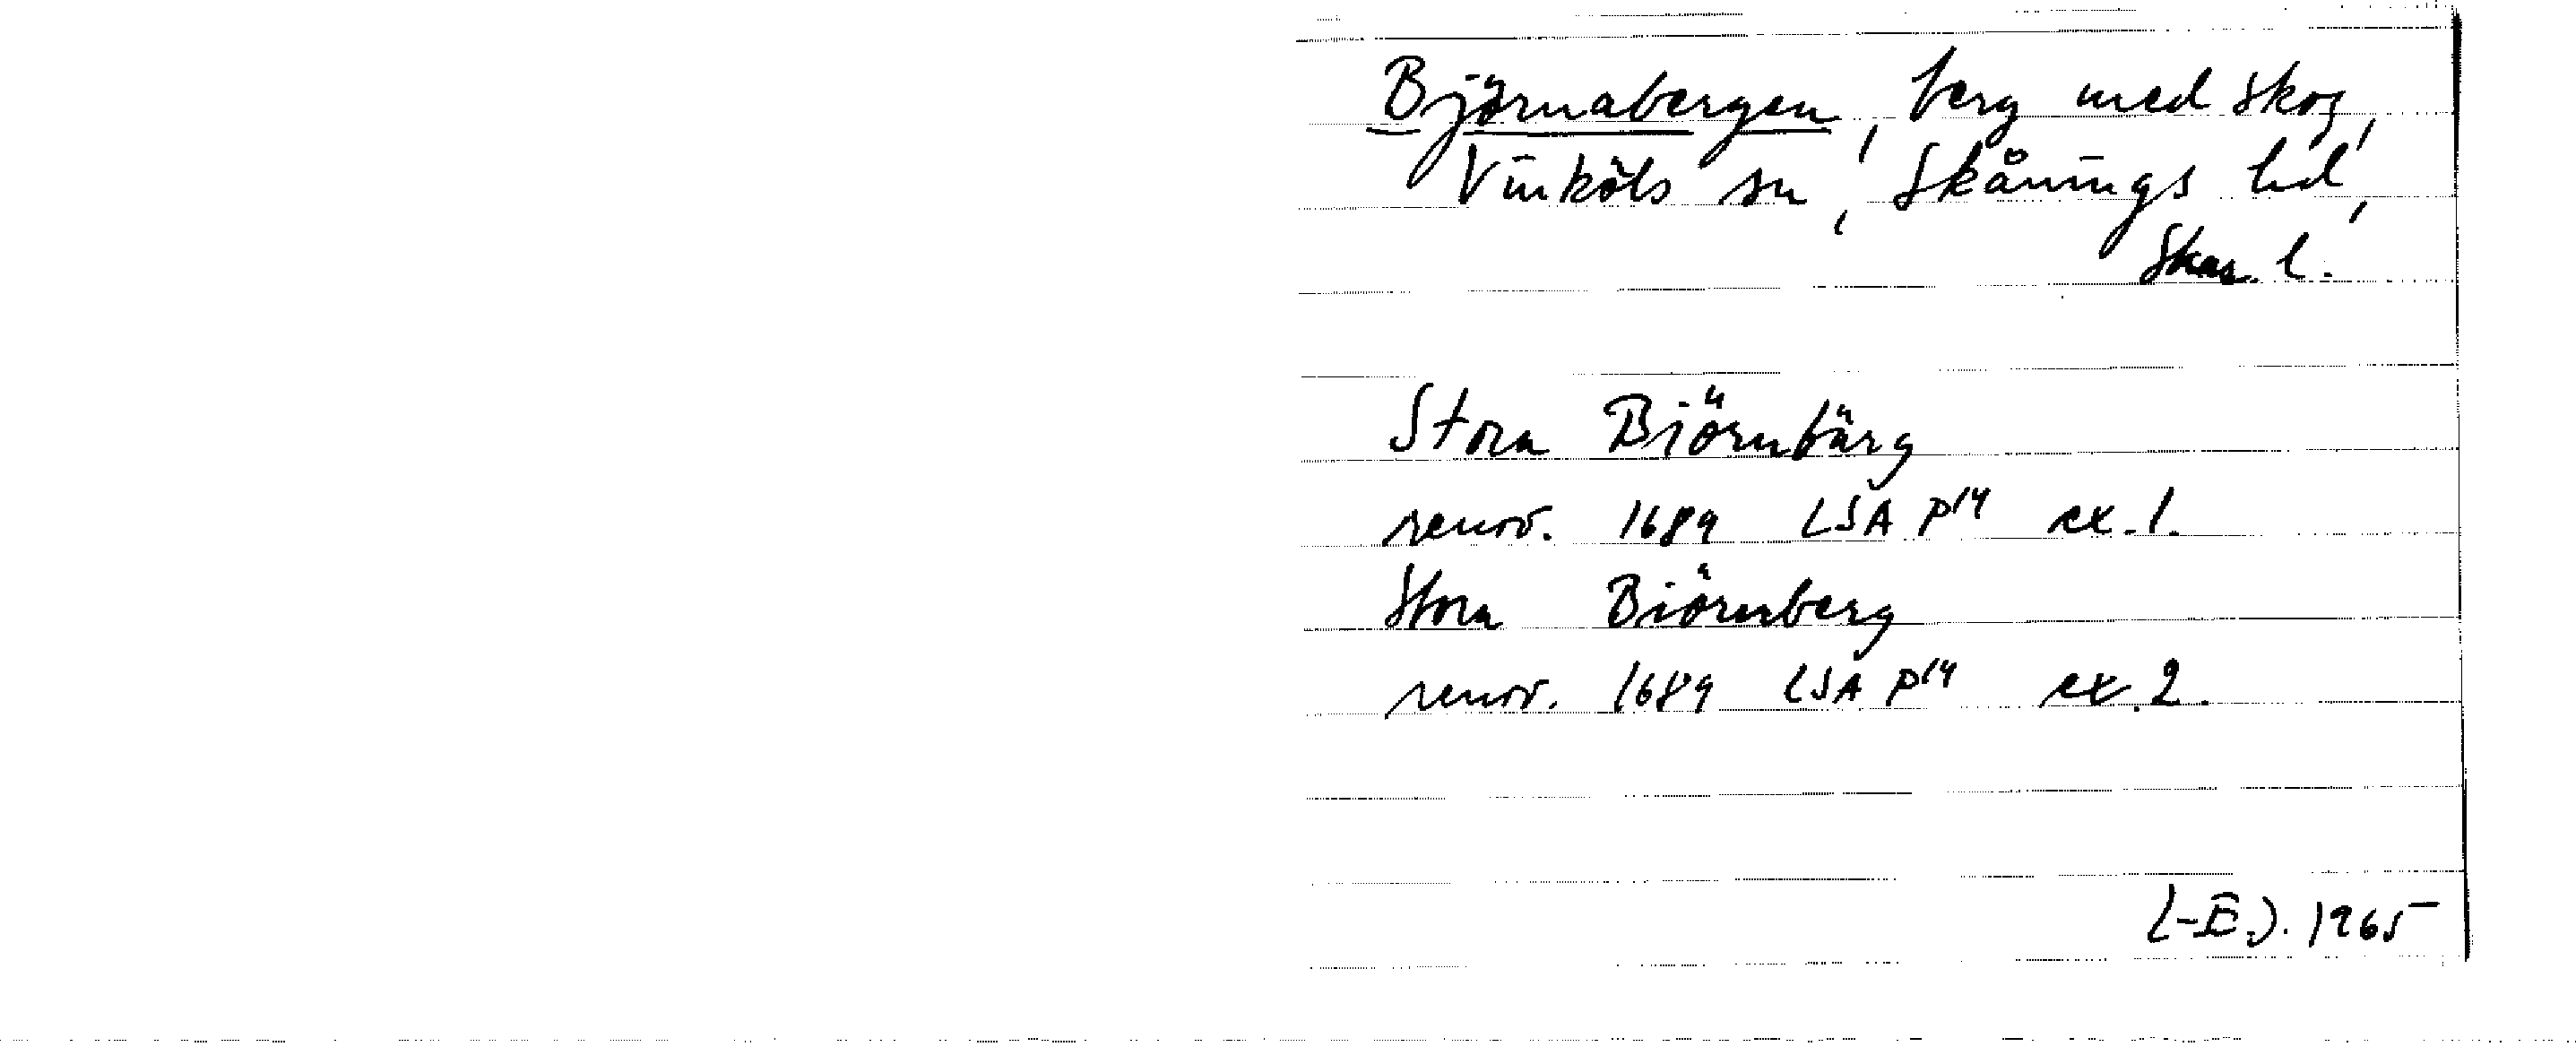 Björnabergen, berg med skog,
Vinköls sn, Skånings hd,
Skar. l.
Stora Biörnbärg
renov. 1689 LSA P14 ex. 1.
Stora Biörnberg
renov. 1689 LSA P14 ex. 2.
(-E.). 1965